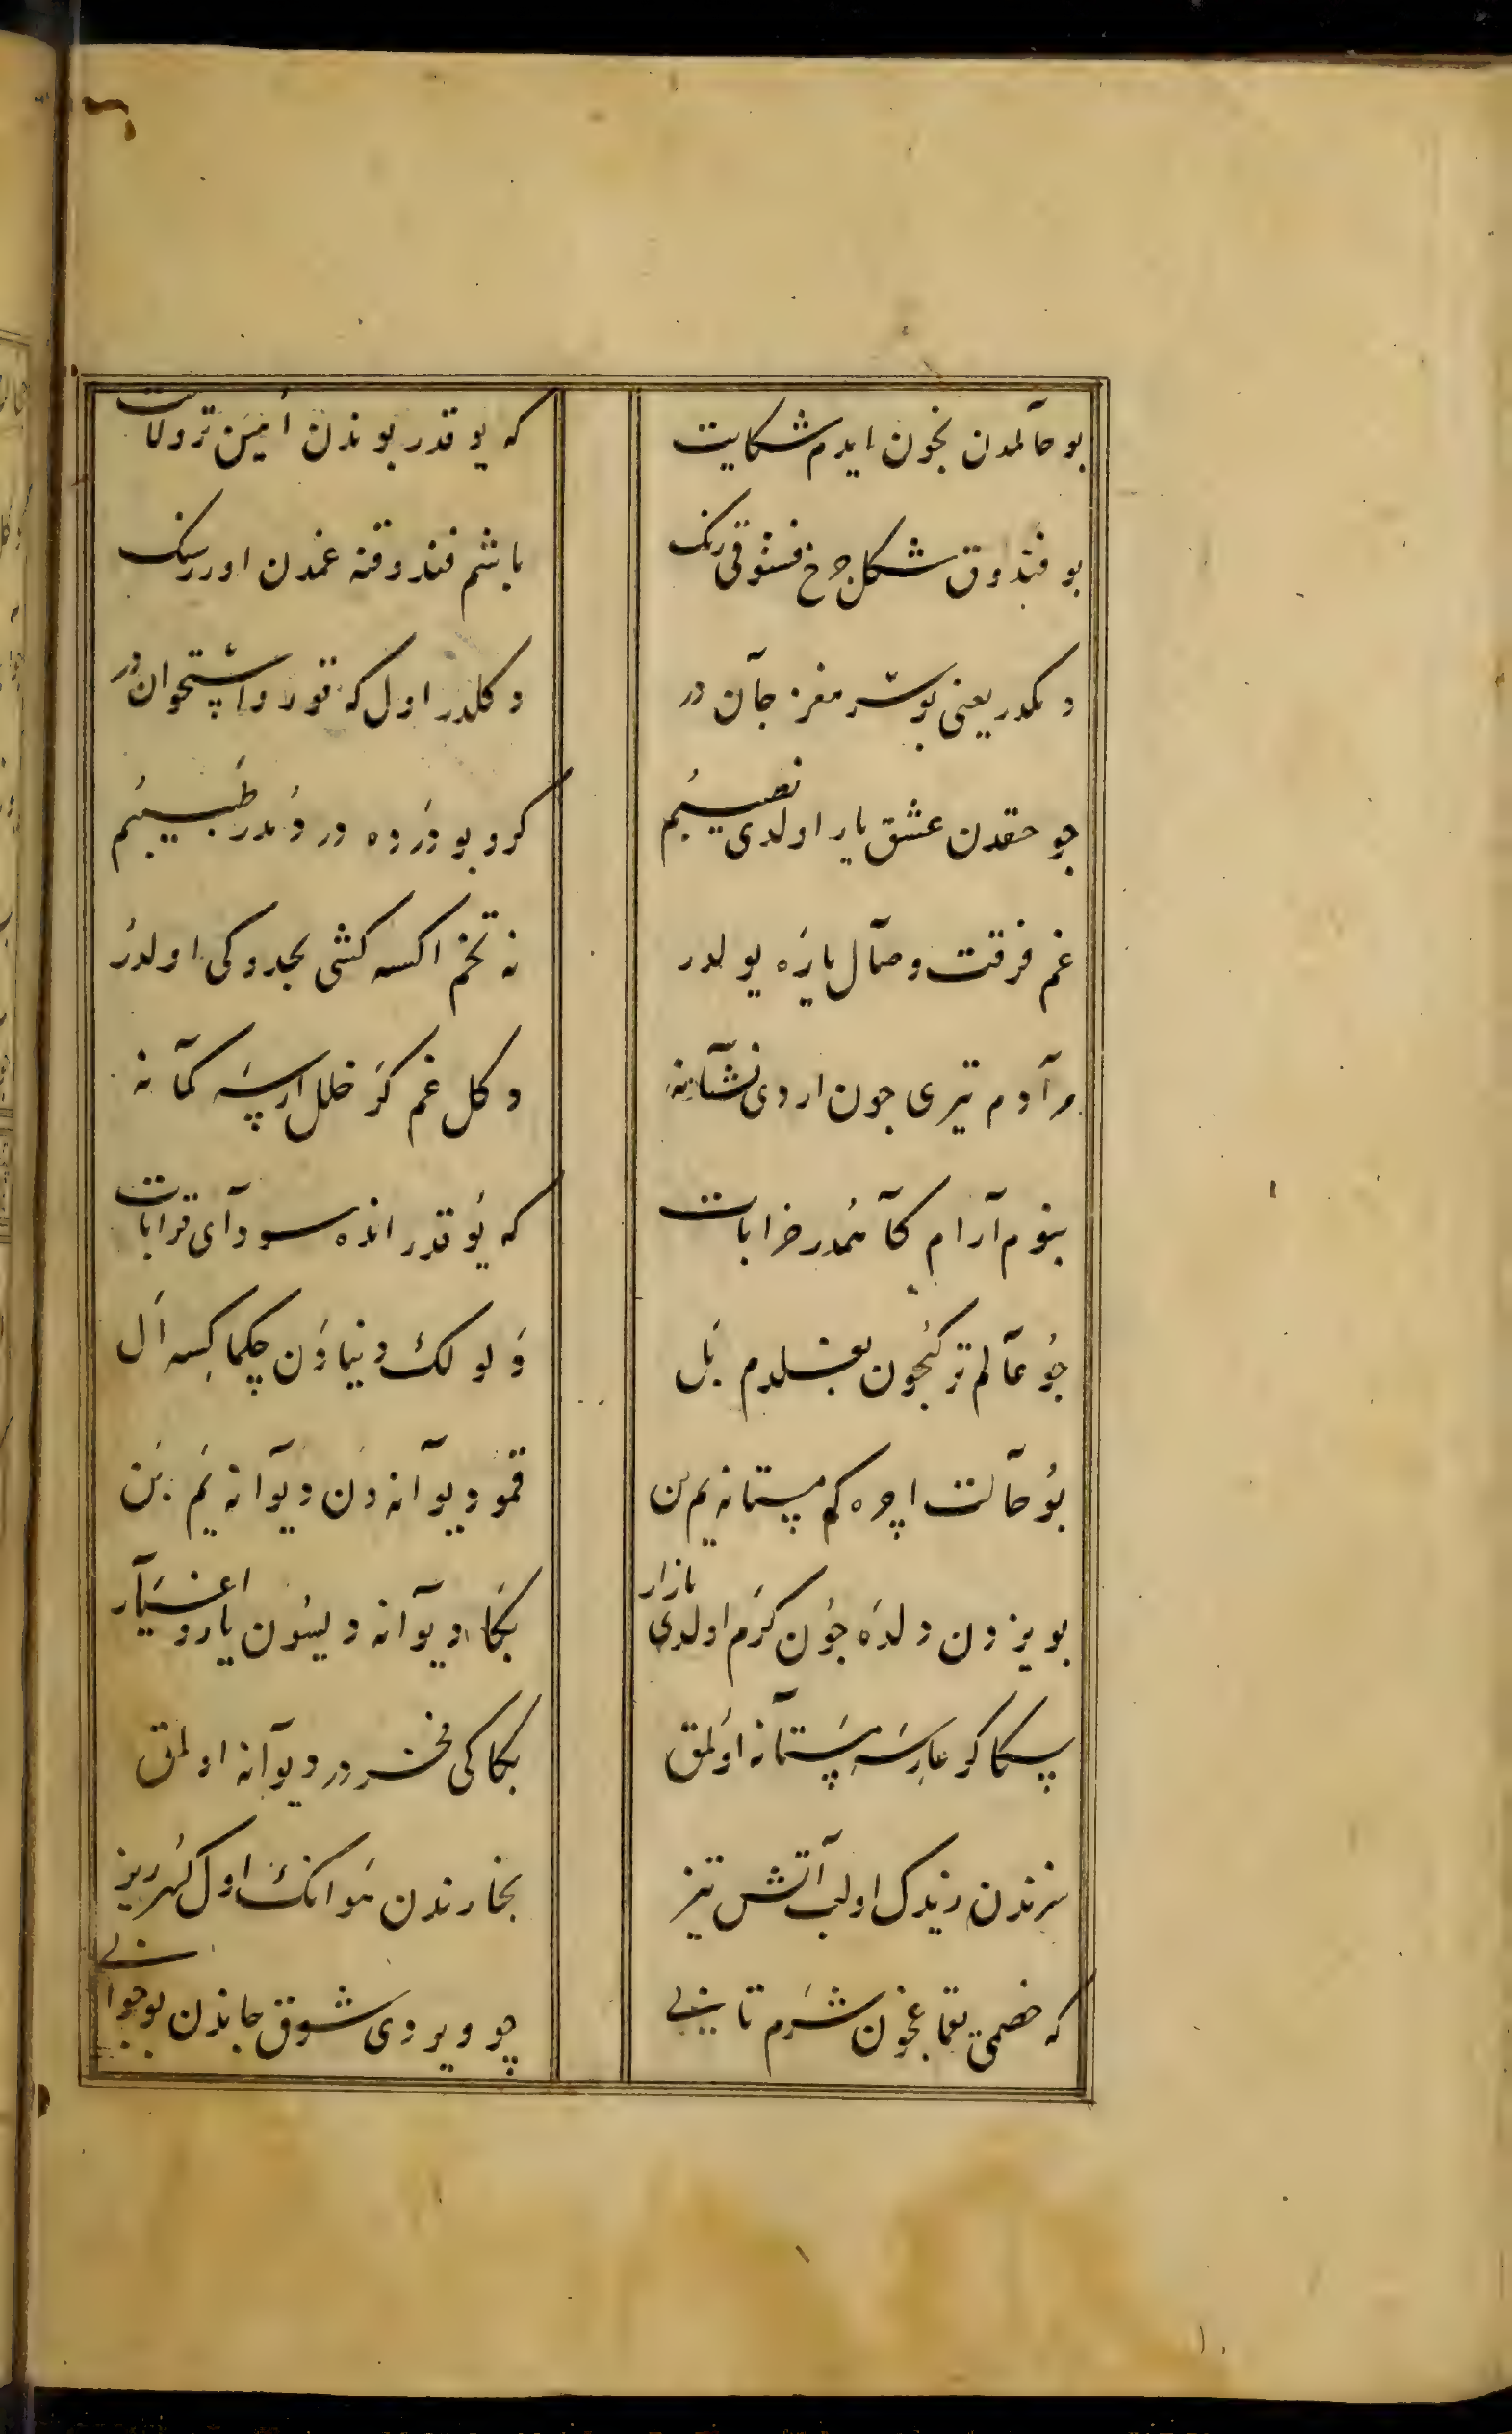 بو حآلمدن نجون ایدم شكایت
كه یوقدر بوندن امین تر ولایت
بو فندوق شكل چرخ فستوقی رنك
باشم فندوقنه غمدن اورر سنك
دكمدر یعنی بوسر مغز جآن در
دكلدر اول كه قورد استخوان در
چو حقدن عشق یار اولدی نصیبم
كرو بو دَرده دردُمدر طَبیبُم
غم فرقت وصآل یارَه یولدر
نه تخم اكسه كشی بجدوكی اولدرُ
مرآدم تیری چون اردی نشآنه
دكل غم كَر خلل ارسَه كمآنه
بنوم آرام كآهُمدر خرابات
كه یُوقدر انده سودآی قرابات
چُو عآلم تركیُچون بغلدم بَل
دَ لو لك دنیادَن چكماكسه اَل
بُو حآلت اچره كم مستانه یم بن
قمو دیوآنه دَن دیوآنه یَم بَن
بو یزدن دلدَه چُون كرَم اولدی بازار
بكَا دیوآنه دیسُون یار و اغیَآر
سكا كر عارسَه مَستآنه اوُلمق
بكا كی فخردر دیوآنه اولمق
سزندن زیرك اولب آتش تیز
بخارندن هَوانكْ اول كهُرریز
كه خصمی یغماغچون شَرم تابی
چو ویردی شوق جاندن بو جوابی